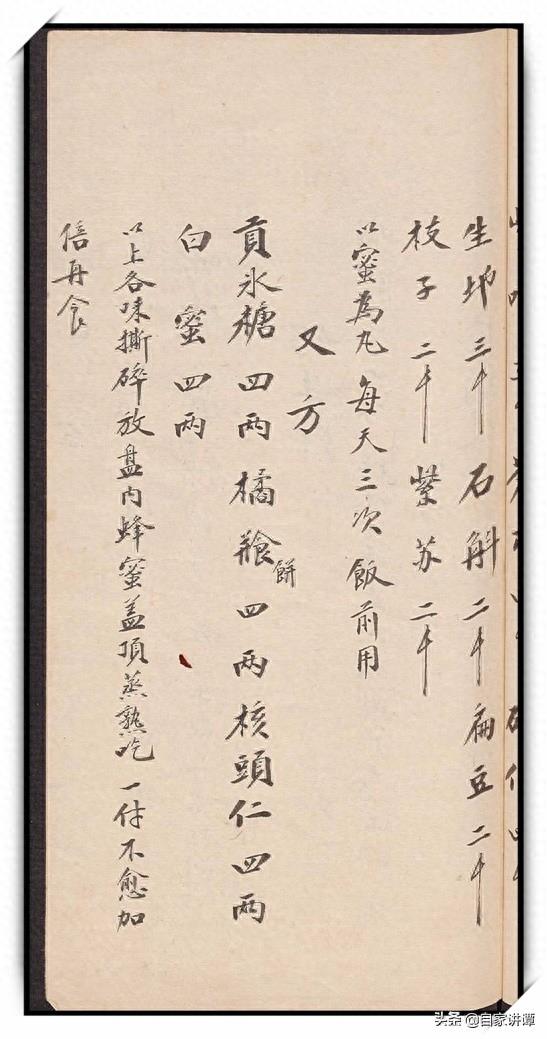 生地三千石斛二千扁豆二千
枝子二千紫苏二千
以蜜為丸每天三次飯前用
又方
貢氷糖四两橘飱餅四两核頭仁四两
白蜜四两
以上各味撕碎放盘内蜂蜜盖頂蒸熟吃一付不愈加
倍再食
头条 @自家讲谭